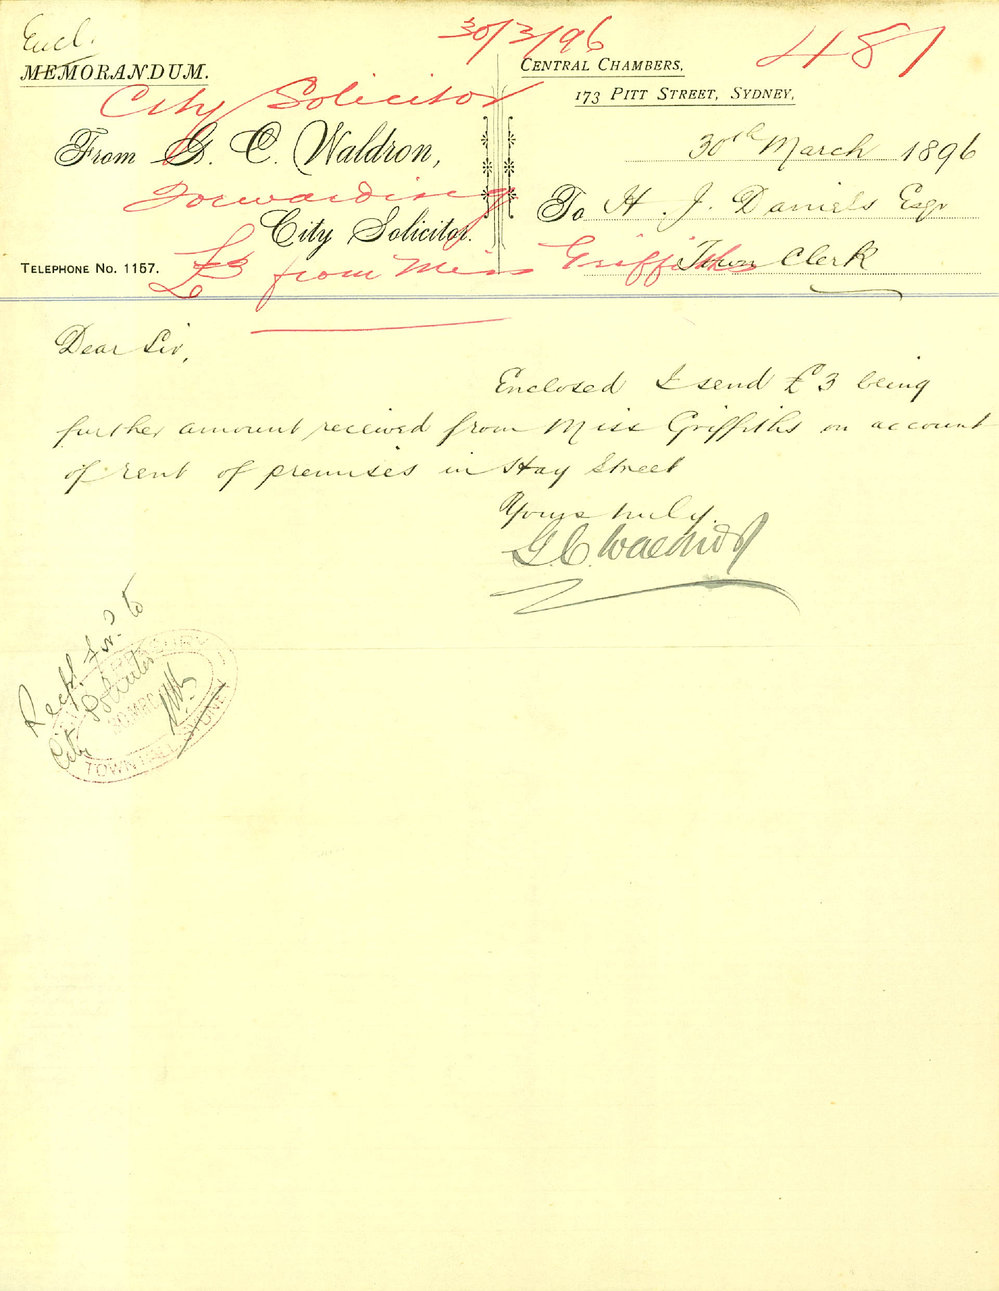 Encl.
30/3/96
481
MEMORANDUM.
CENTRAL CHAMBERS,
173 PITT STREET, SYDNEY,
City Solicitor
From G. C. Waldron,
30th March 1896
Forwarding
To H. J. Daniels Esqr
City Solicitor.
TELEPHONE NO. 1157.
£3 from Miss Griffiths
Town Clerk
Dear Sir,
Enclosed I send £3 being
further amount received from Miss Griffiths on account
of rent of premises in Hay Street
Yours truly
G. C. Waldron
Recpt. to
City Solicitor
TOWN HALL SYDNEY